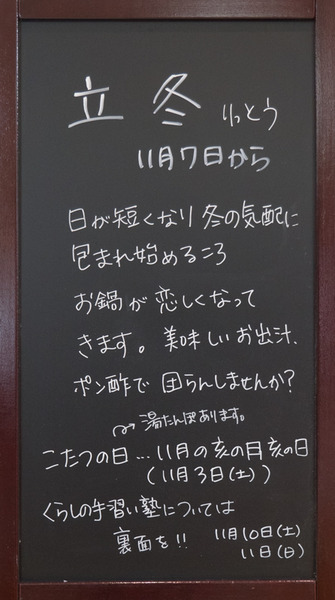 立冬 りっとう
11月7日から
日が短くなり 冬の気配に
包まれ始めるころ
お鍋が恋しくなって
きます。美味しいお出汁、
ポン酢で団らんしませんか?
湯たんぽあります。
こたつの日…11月の亥の月亥の日
(11月3日(土))
くらしの手習い塾については
裏面を!! 11月10日(土)
11日(日)